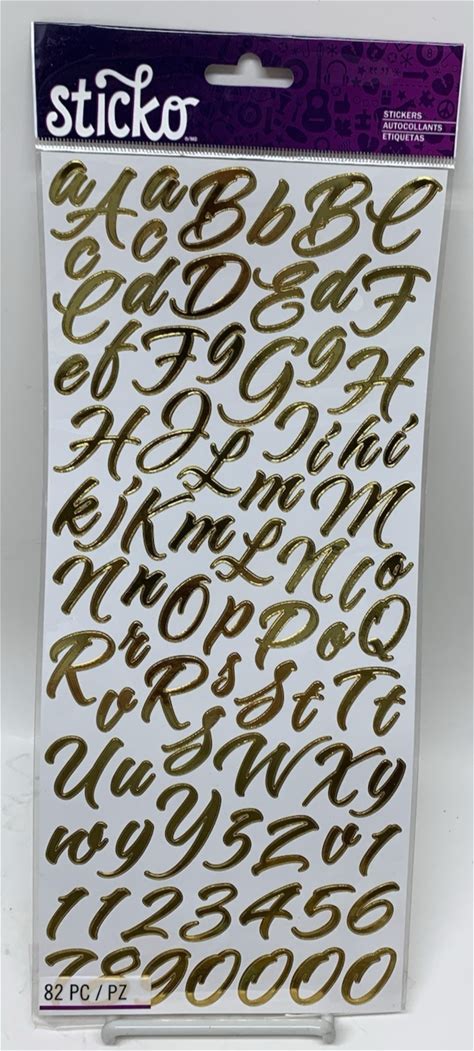 sticko
STICKERS
AUTOCOLLANTS
ETIQUETAS
a A a B b B C
c c
C d D E d F
e f F g G g H
H J L I i h i
k j K m L m M
N n O p L N l o
R r R s P o Q
v S S t T t
U u W X y
w y Y 3 Z v 1
1 1 2 3 4 5 6
7 8 9 0 0 0 0
82 PC / PZ